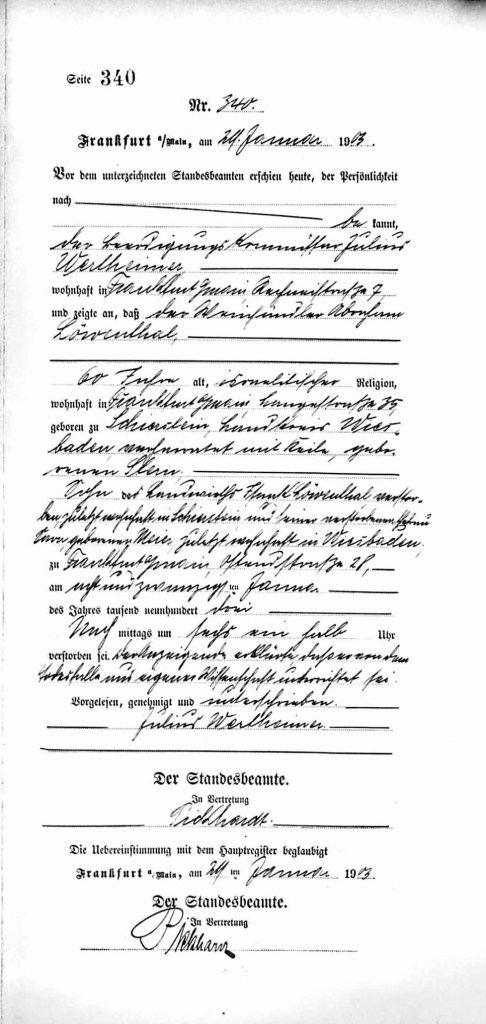 Seite 340
Nr. 340.
Frankfurt a/Main, am 29. Januar 1903.
Vor dem unterzeichneten Standesbeamten erschien heute, der Persönlichkeit
nach
be kannt,
der Beerdigungs Kommissar Julius
Wertheimer,
wohnhaft in Frankfurt Main, Rechneistraße 7
und zeigte an, daß der Weinhändler Abraham
Löwenthal,
60 Jahre alt, israelitischer Religion,
wohnhaft in Frankfurt Main, Langestraße 35,
geboren zu Schierstein, Landkreis Wies-
baden, verheiratet mit gebo-
renen Stern,
Sohn des Landwirths Löwenthal verstor-
ben, zuletzt wohnhaft in Schierstein und seiner verstorbenen Ehefrau
geborenen zuletzt wohnhaft in Wiesbaden,
zu Frankfurt Main, Ostendstraße 28,
am acht und zwanzig ten Januar
des Jahres tausend neunhundert drei
Nach mittags um sechs ein halb Uhr
verstorben sei. Der Anzeigende erklärte, daß er von dem
Sterbefalle aus eigener Wissenschaft unterrichtet sei.
Vorgelesen, genehmigt und unterschrieben.
Julius Wertheimer
Der Standesbeamte.
In Vertretung
Die Uebereinstimmung mit dem Hauptregister beglaubigt
Frankfurt a/Main, am 29 ten Januar 1903.
Der Standesbeamte.
In Vertretung